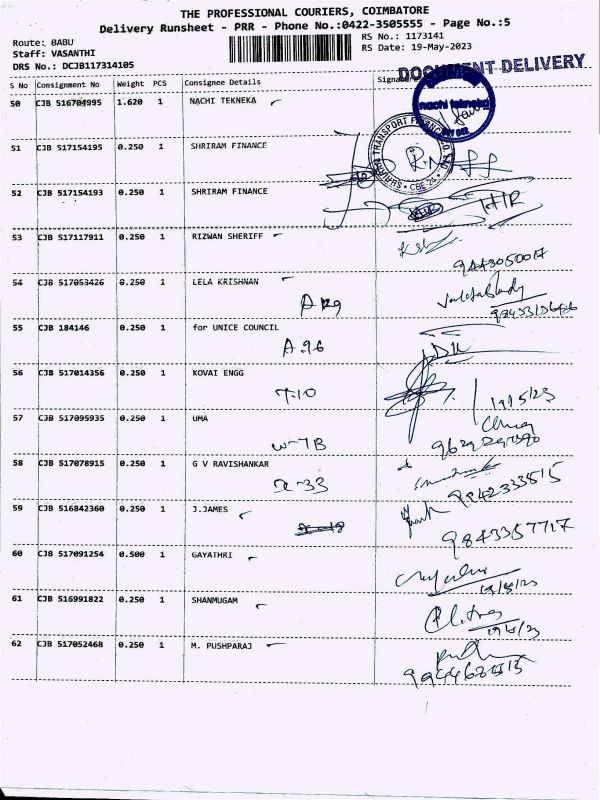 THE PROFESSIONAL COURIERS, COIMBATORE
Delivery Runsheet - PRR - Phone No.:0422-3505555 - Page No.:5
Route: BABU
RS No.: 1173141
Staff: VASANTHI
RS Date: 19-May-2023
DRS No.: DCJB117314105
DOCUMENT DELIVERY
S No Consignment No Weight PCS Consignee Details Signature
50 CJB 516704995 1.620 1 NACHI TEKNEKA
nachi tekneka
51 CJB 517154195 0.250 1 SHRIRAM FINANCE
TRANSPORT FINANCE CO. LTD
CBE 25
52 CJB 517154193 0.250 1 SHRIRAM FINANCE
53 CJB 517117911 0.250 1 RIZWAN SHERIFF
9443050017
54 CJB 517053426 0.250 1 LELA KRISHNAN
55 CJB 184146 0.250 1 for UNICE COUNCIL
A-96
56 CJB 517014356 0.250 1 KOVAI ENGG
T-10
19/5/23
57 CJB 517095935 0.250 1 UMA
W-7B
58 CJB 517078915 0.250 1 G V RAVISHANKAR
x-33
9842333515
59 CJB 516842360 0.250 1 J.JAMES
9843357717
60 CJB 517091254 0.500 1 GAYATHRI
19/5/23
61 CJB 516991822 0.250 1 SHANMUGAM
19/5/23
62 CJB 517052468 0.250 1 M. PUSHPARAJ